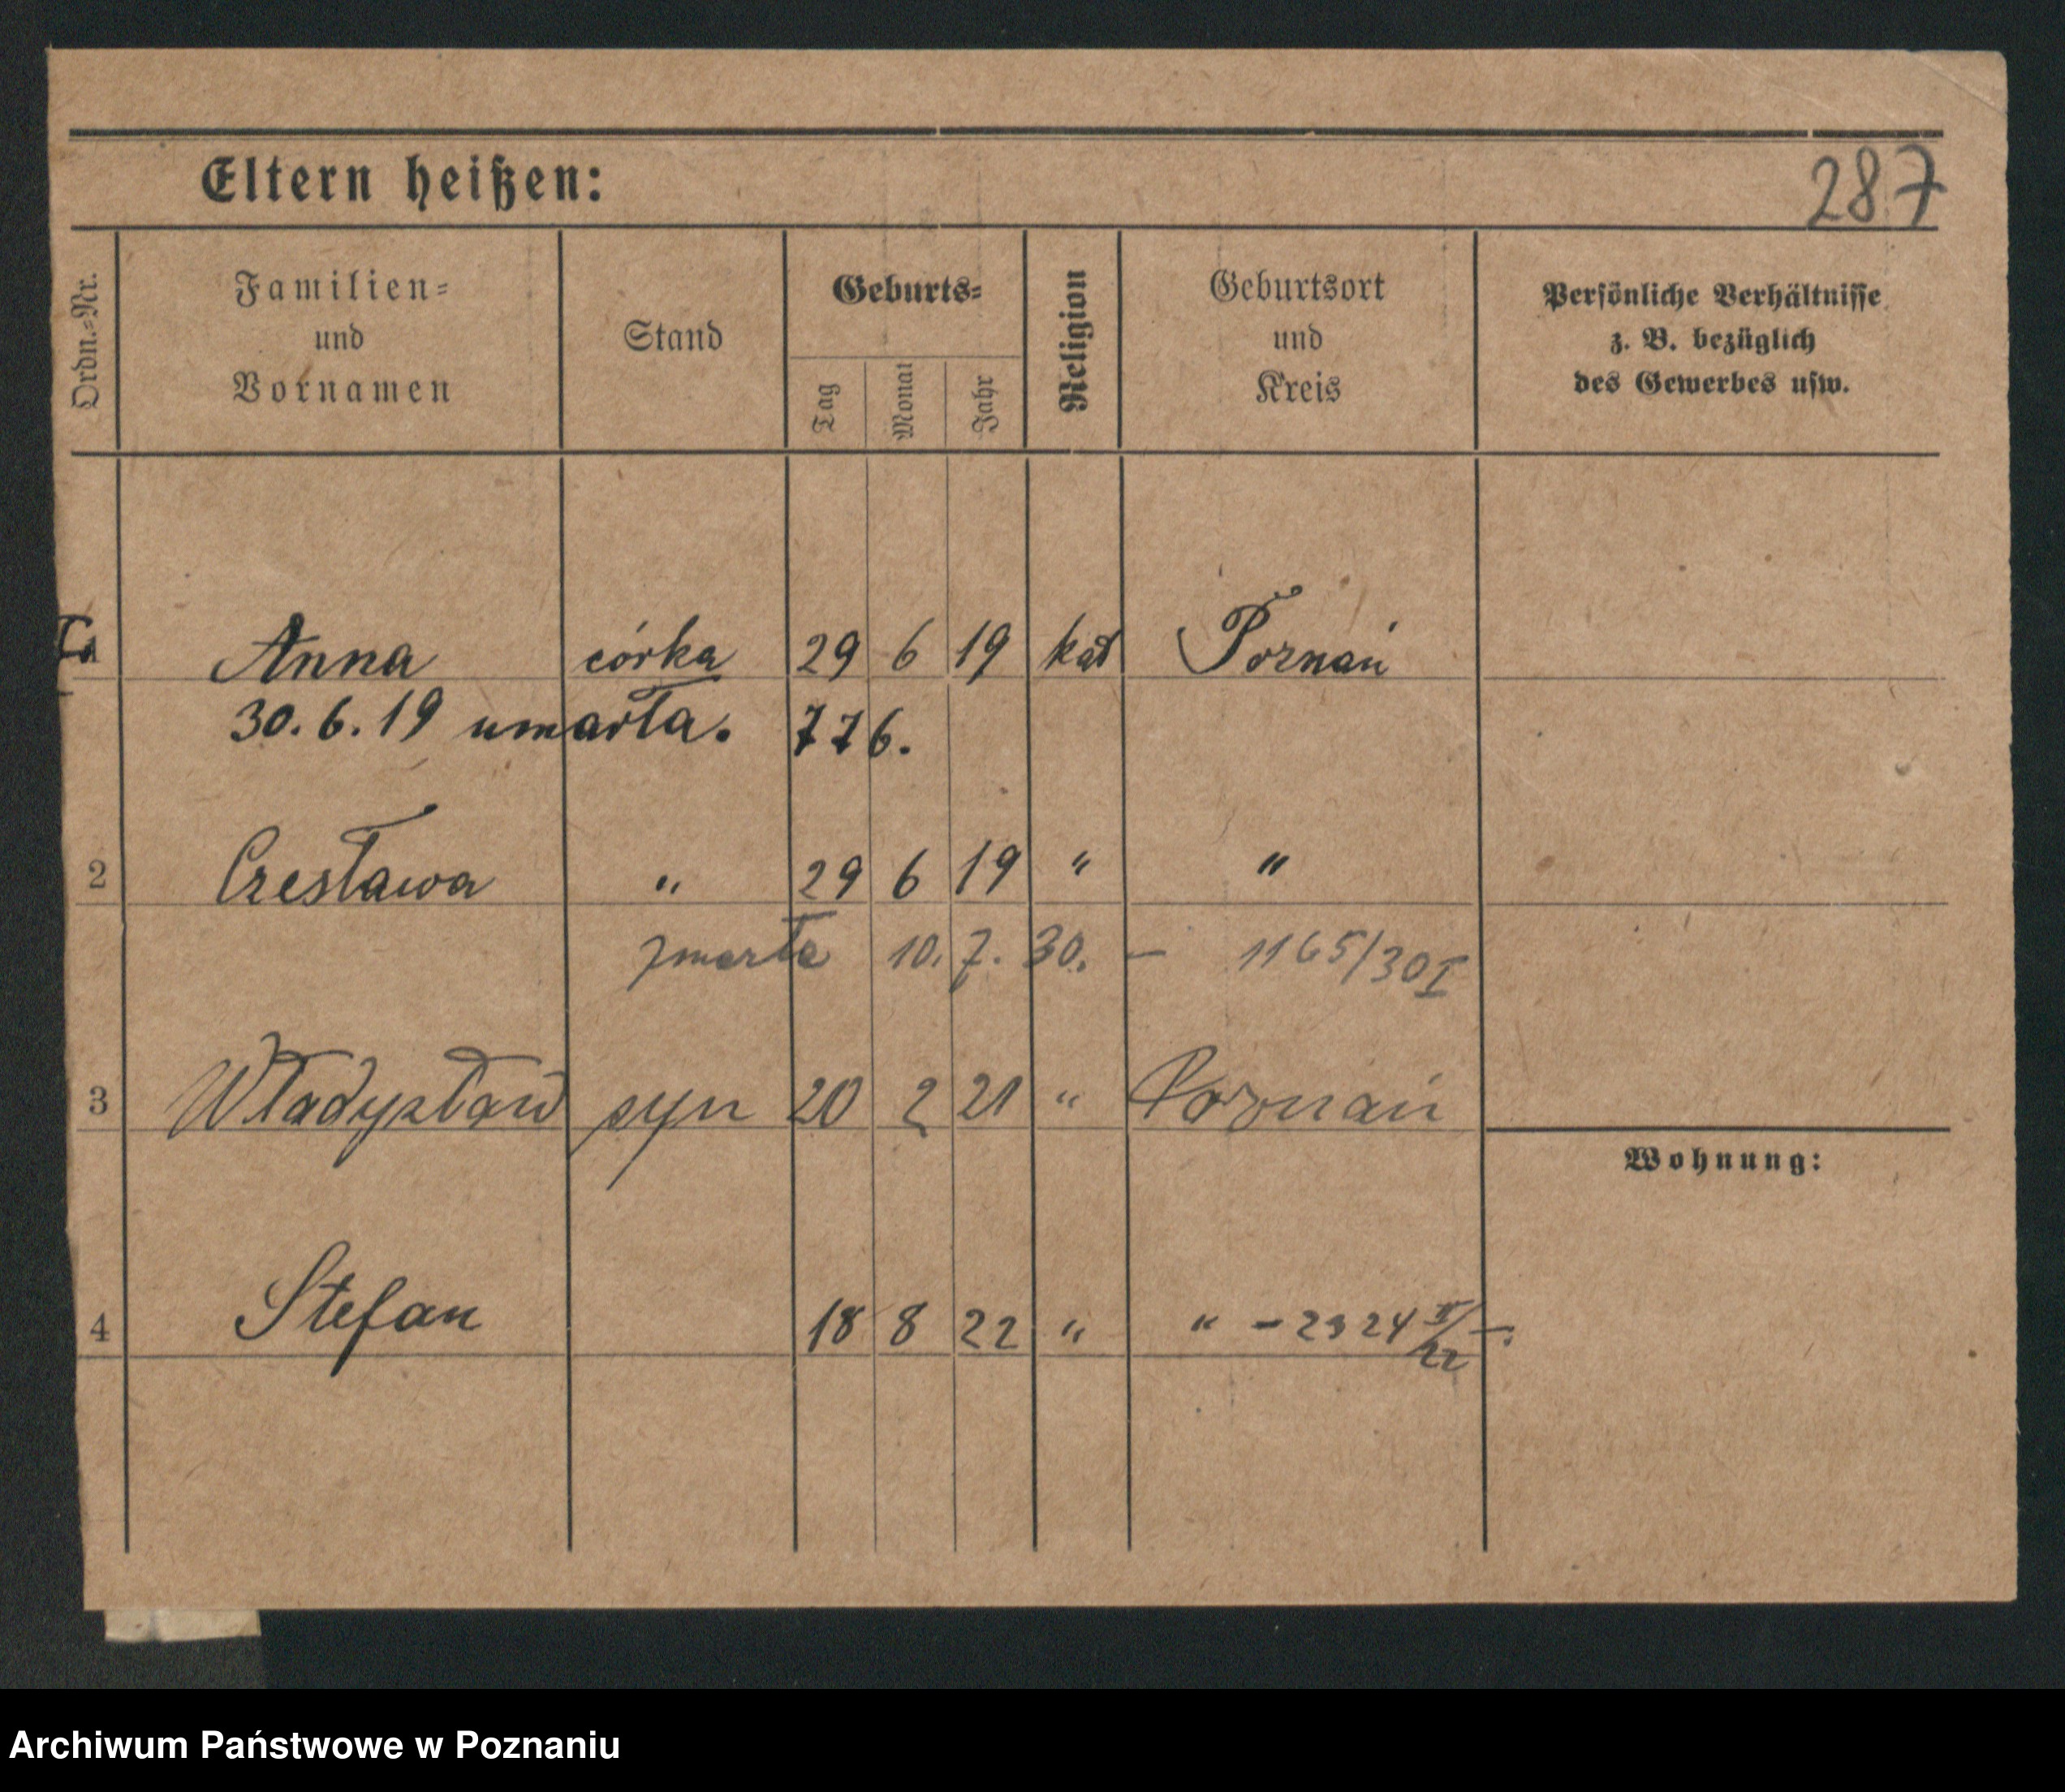 Eltern heißen:
287
Ordn.-Nr.
Familien-
und
Vornamen
Stand
Geburts-
Tag
Monat
Jahr
Religion
Geburtsort
und
Kreis
Persönliche Verhältnisse
z. B. bezüglich
des Gewerbes usw.
1 Anna córka 29 6 19 kat Poznań
30.6.19 umarła. 776.
2 Czesława " 29 6 19 " "
zmarła 10. 7. 30. – 1165/30 I
3 Władysław syn 20 2 21 " Poznań
Wohnung:
4 Stefan 18 8 22 " " – 2324 II/22 –
Archiwum Państwowe w Poznaniu